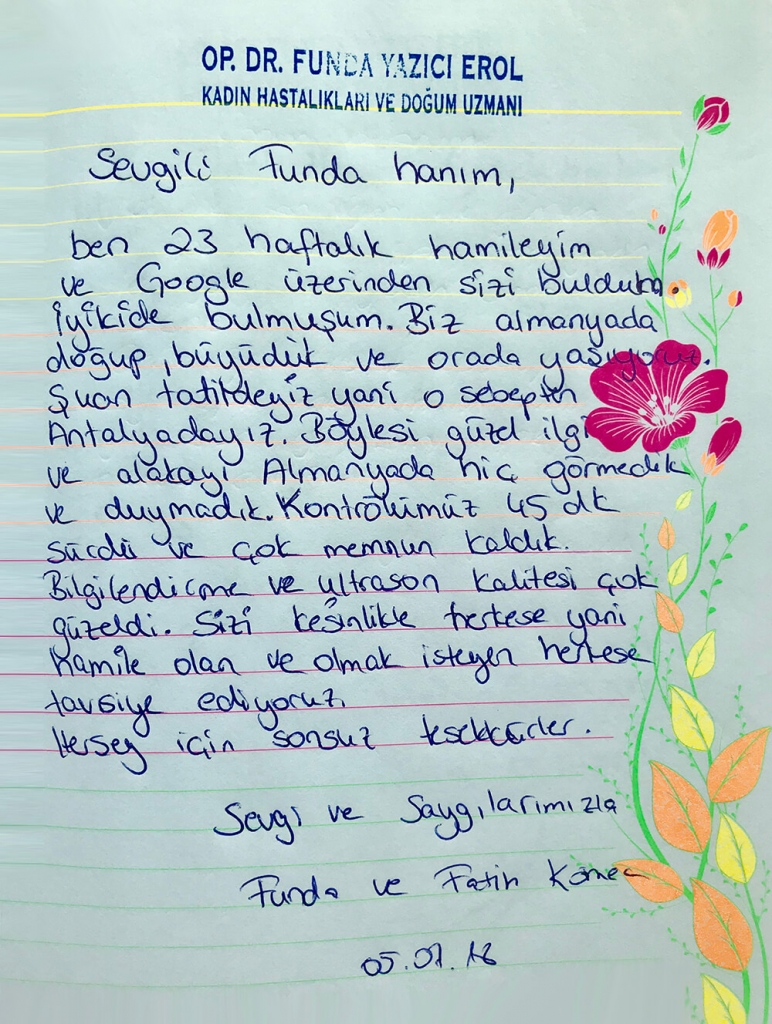 OP. DR. FUNDA YAZICI EROL
KADIN HASTALIKLARI VE DOĞUM UZMANI
Sevgili Funda hanım,
ben 23 haftalık hamileyim
ve Google üzerinden sizi buldum.
iyikide bulmuşum. Biz almanyada
doğup, büyüdük ve orada yaşıyoruz.
Şuan tatildeyiz yani o sebepten
Antalyadayız. Böylesi güzel ilgi
ve alakayı Almanyada hiç görmedik
ve duymadık. Kontrolümüz 45 dk
sürdü ve çok memnun kaldık.
Bilgilendirme ve ultrason kalitesi çok
güzeldi. Sizi kesinlikle herkese yani
Hamile olan ve olmak isteyen herkese
tavsiye ediyoruz.
Hersey için sonsuz tesekkürler.
Sevgi ve Saygılarımızla
Funda ve Fatih
05.07.18